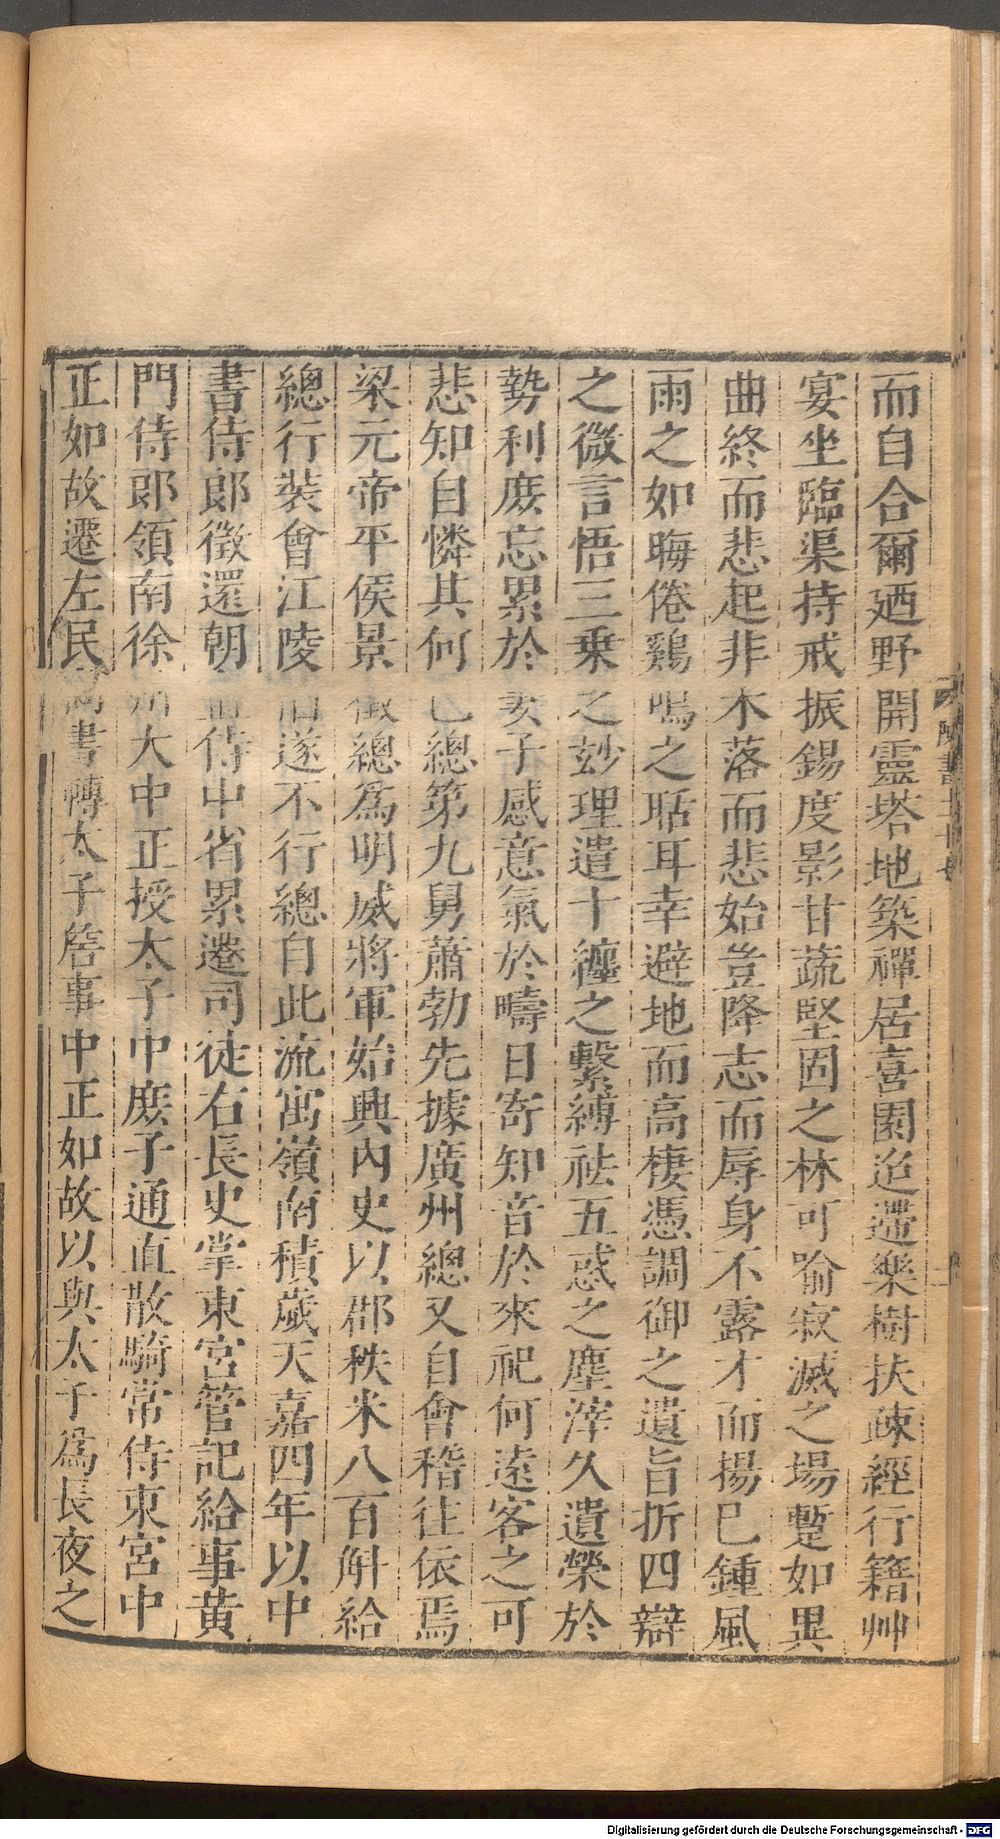 而自合爾廼野開靈塔地築禪居喜園迢遰樂樹扶疎經行籍艸
宴坐臨渠持戒振錫度影甘蔬堅固之林可喻寂滅之場蹔如異
曲終而悲起非木落而悲始豈降志而辱身不露才而揚巳鍾風
雨之如晦倦鷄鳴之聒耳幸避地而高棲憑調御之遺旨折四辯
之微言悟三乗之玅理遣十纏之繫縛祛五惑之塵滓久遺榮於
勢利庶忘累於妻子感意氣於疇日寄知音於來祀何遠客之可
悲知自憐其何巳總第九舅蕭勃先據廣州總又自會稽往依焉
梁元帝平侯景徵總爲明威將軍始興内史以郡秩米八百斛給
總行裝會江陵陷遂不行總自此流寓嶺南積歲天嘉四年以中
書侍郞徵還朝直侍中省累遷司徒右長史掌東宮管記給事黄
門侍郞領南徐州大中正授太子中庶子通直散騎常侍東宮中
正如故遷左民尚書轉太子詹事中正如故以與太子爲長夜之
陳書二十七
Digitalisierung gefördert durch die Deutsche Forschungsgemeinschaft - DFG